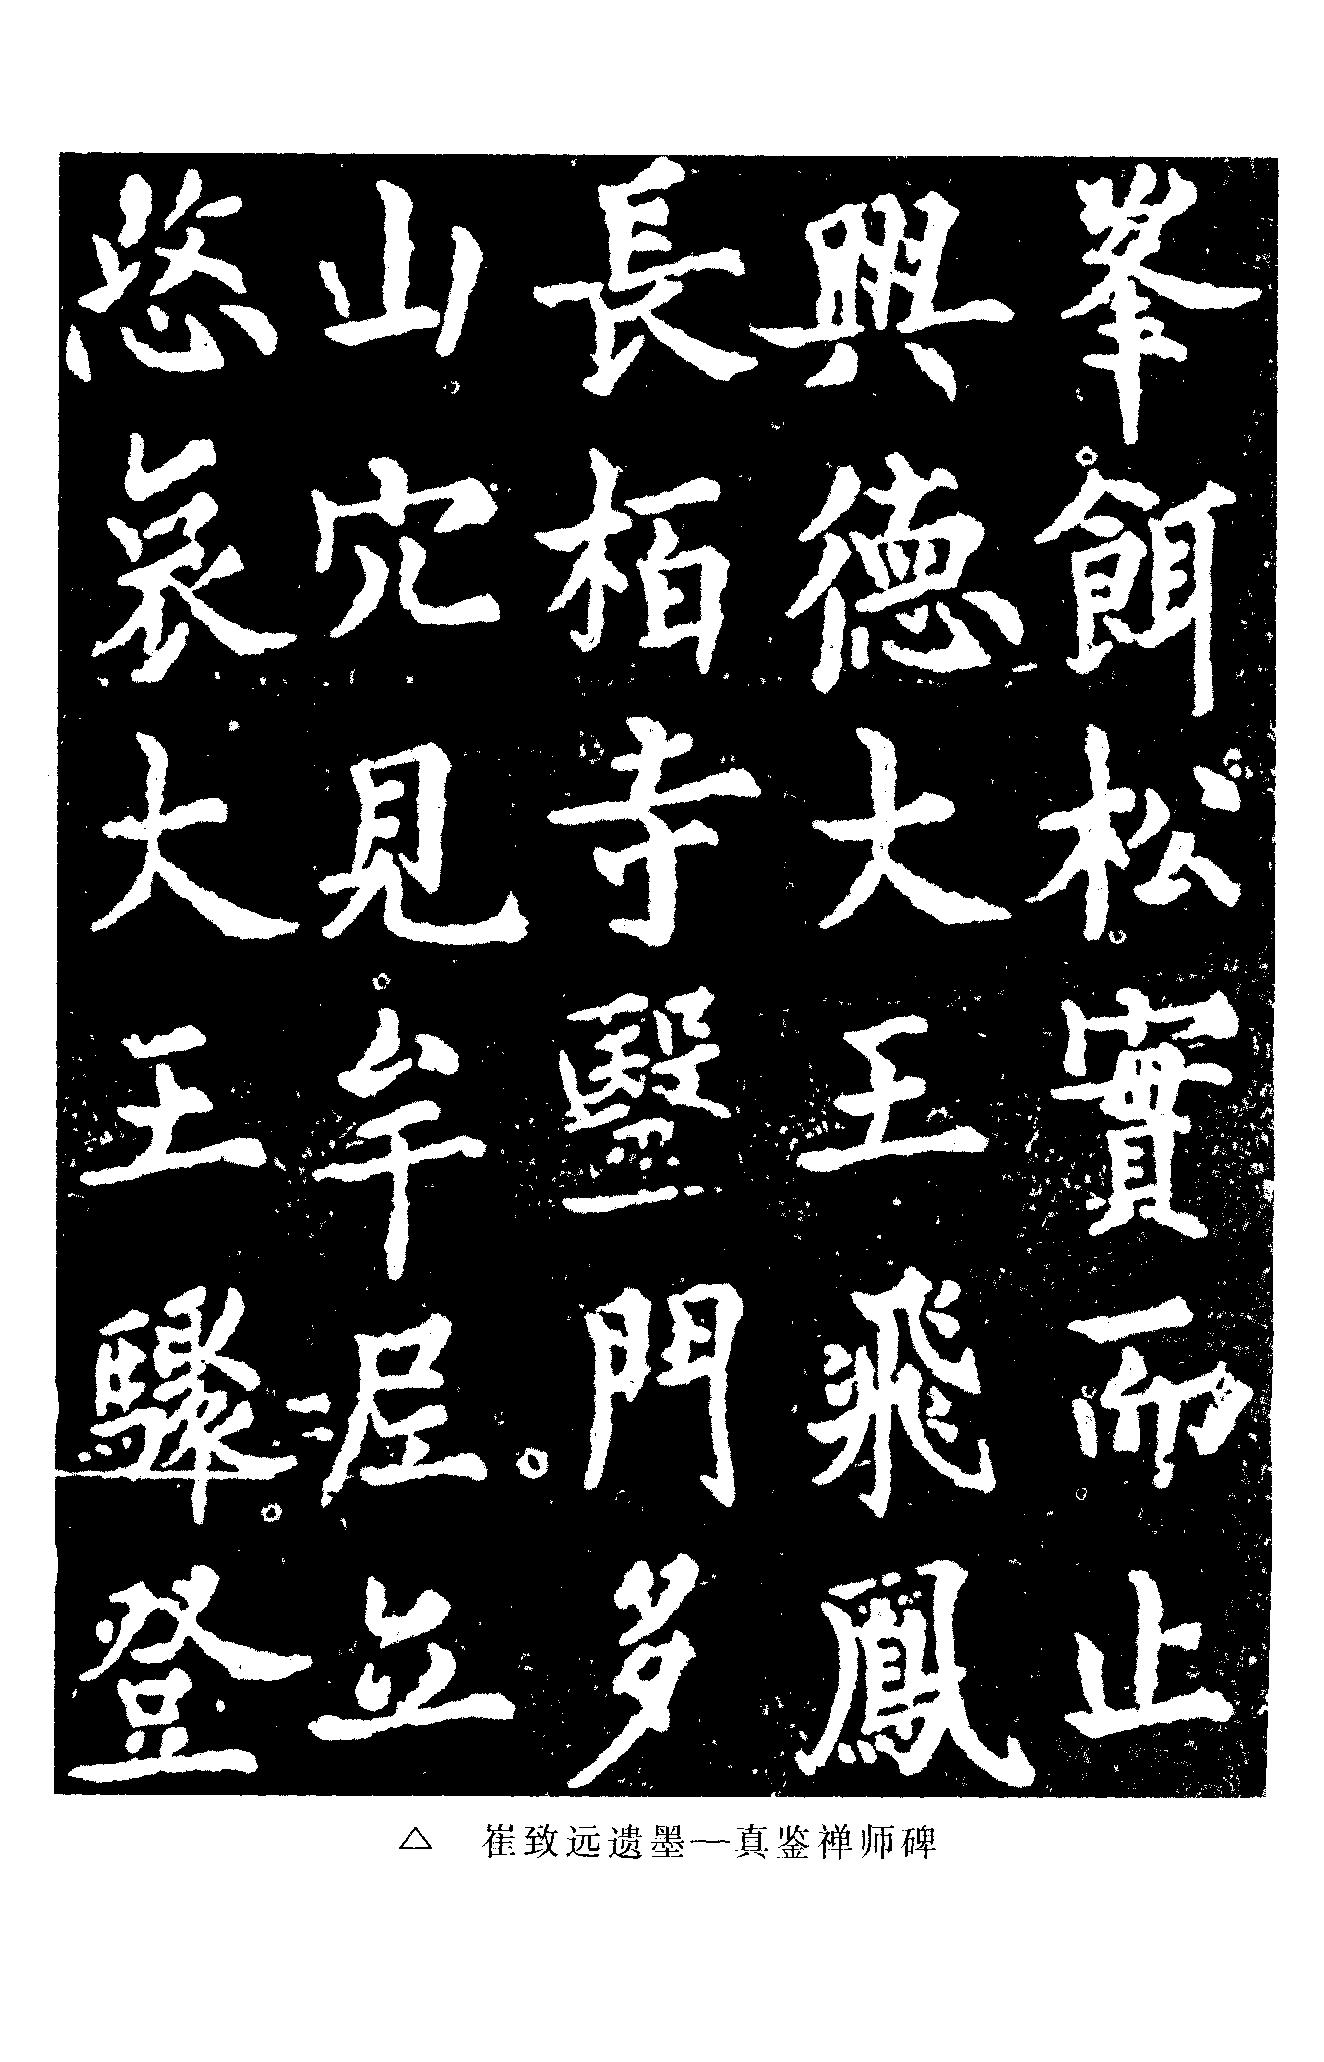 峯餌松實而止
興德大王飛鳳
長栢寺毉門多
山穴見牟尼立
愍哀大王驟登
△ 崔致远遗墨—真鉴禅师碑